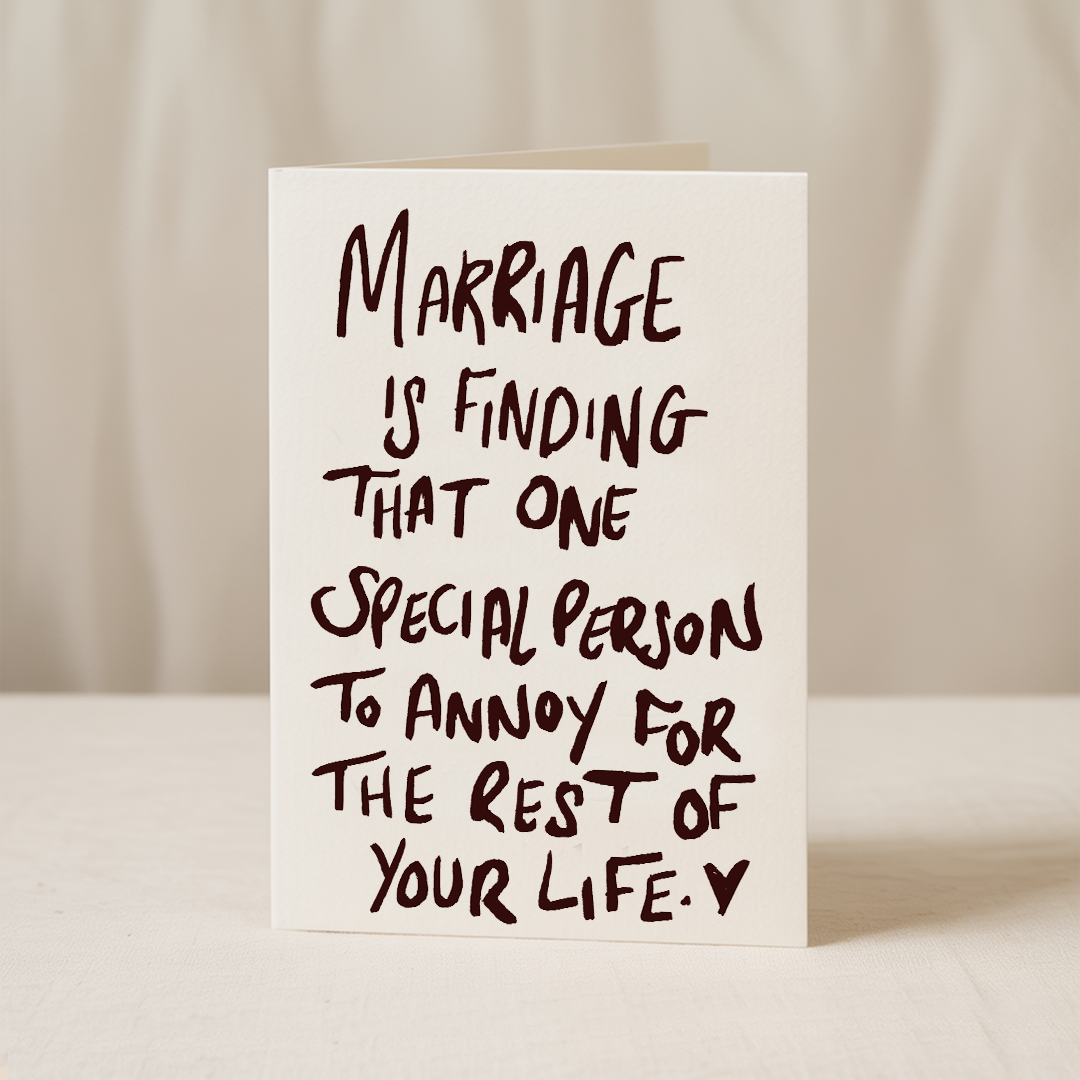 MARRIAGE
IS FINDING
THAT ONE
SPECIAL PERSON
TO ANNOY FOR
THE REST OF
YOUR LIFE. ♥